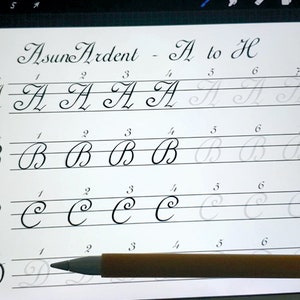 AsunArdent - A to H
1 2 3 4 5 6 7
A A A A A A A
1 2 3 4 5 6
B B B B B B B
1 2 3 4 5 6
C C C C C C C
1 2 3 4 5 6
D D